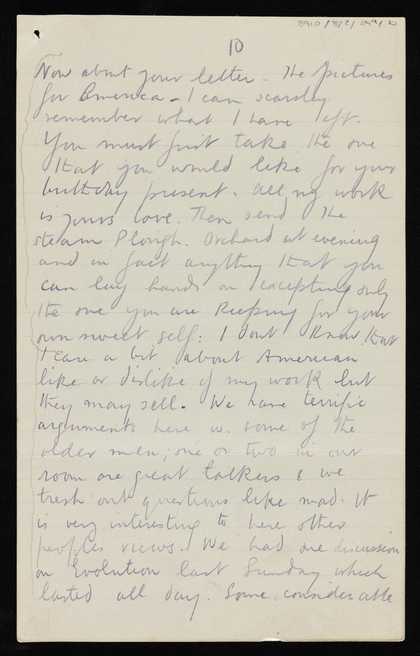 10
Now about your letter - The pictures
for America - I can scarsley
remember what I have left.
You must just take the one
that you would like for your
birthday present. All my work
is yours love. Then send the
steam Plough. Orchard at evening
and in fact anything that you
can lay hands on excepting only
the one you are keeping for your
own sweet self: I dont know that
I care a bit about American
like or dislike of my work but
they may sell. We have terrific
arguments here w. some of the
older men; one or two in our
room are great talkers & we
tresh out questions like mad. It
is very interesting to here other
peoples views. We had one discussion
on Evolution last Sunday which
lasted all day. Some considerable